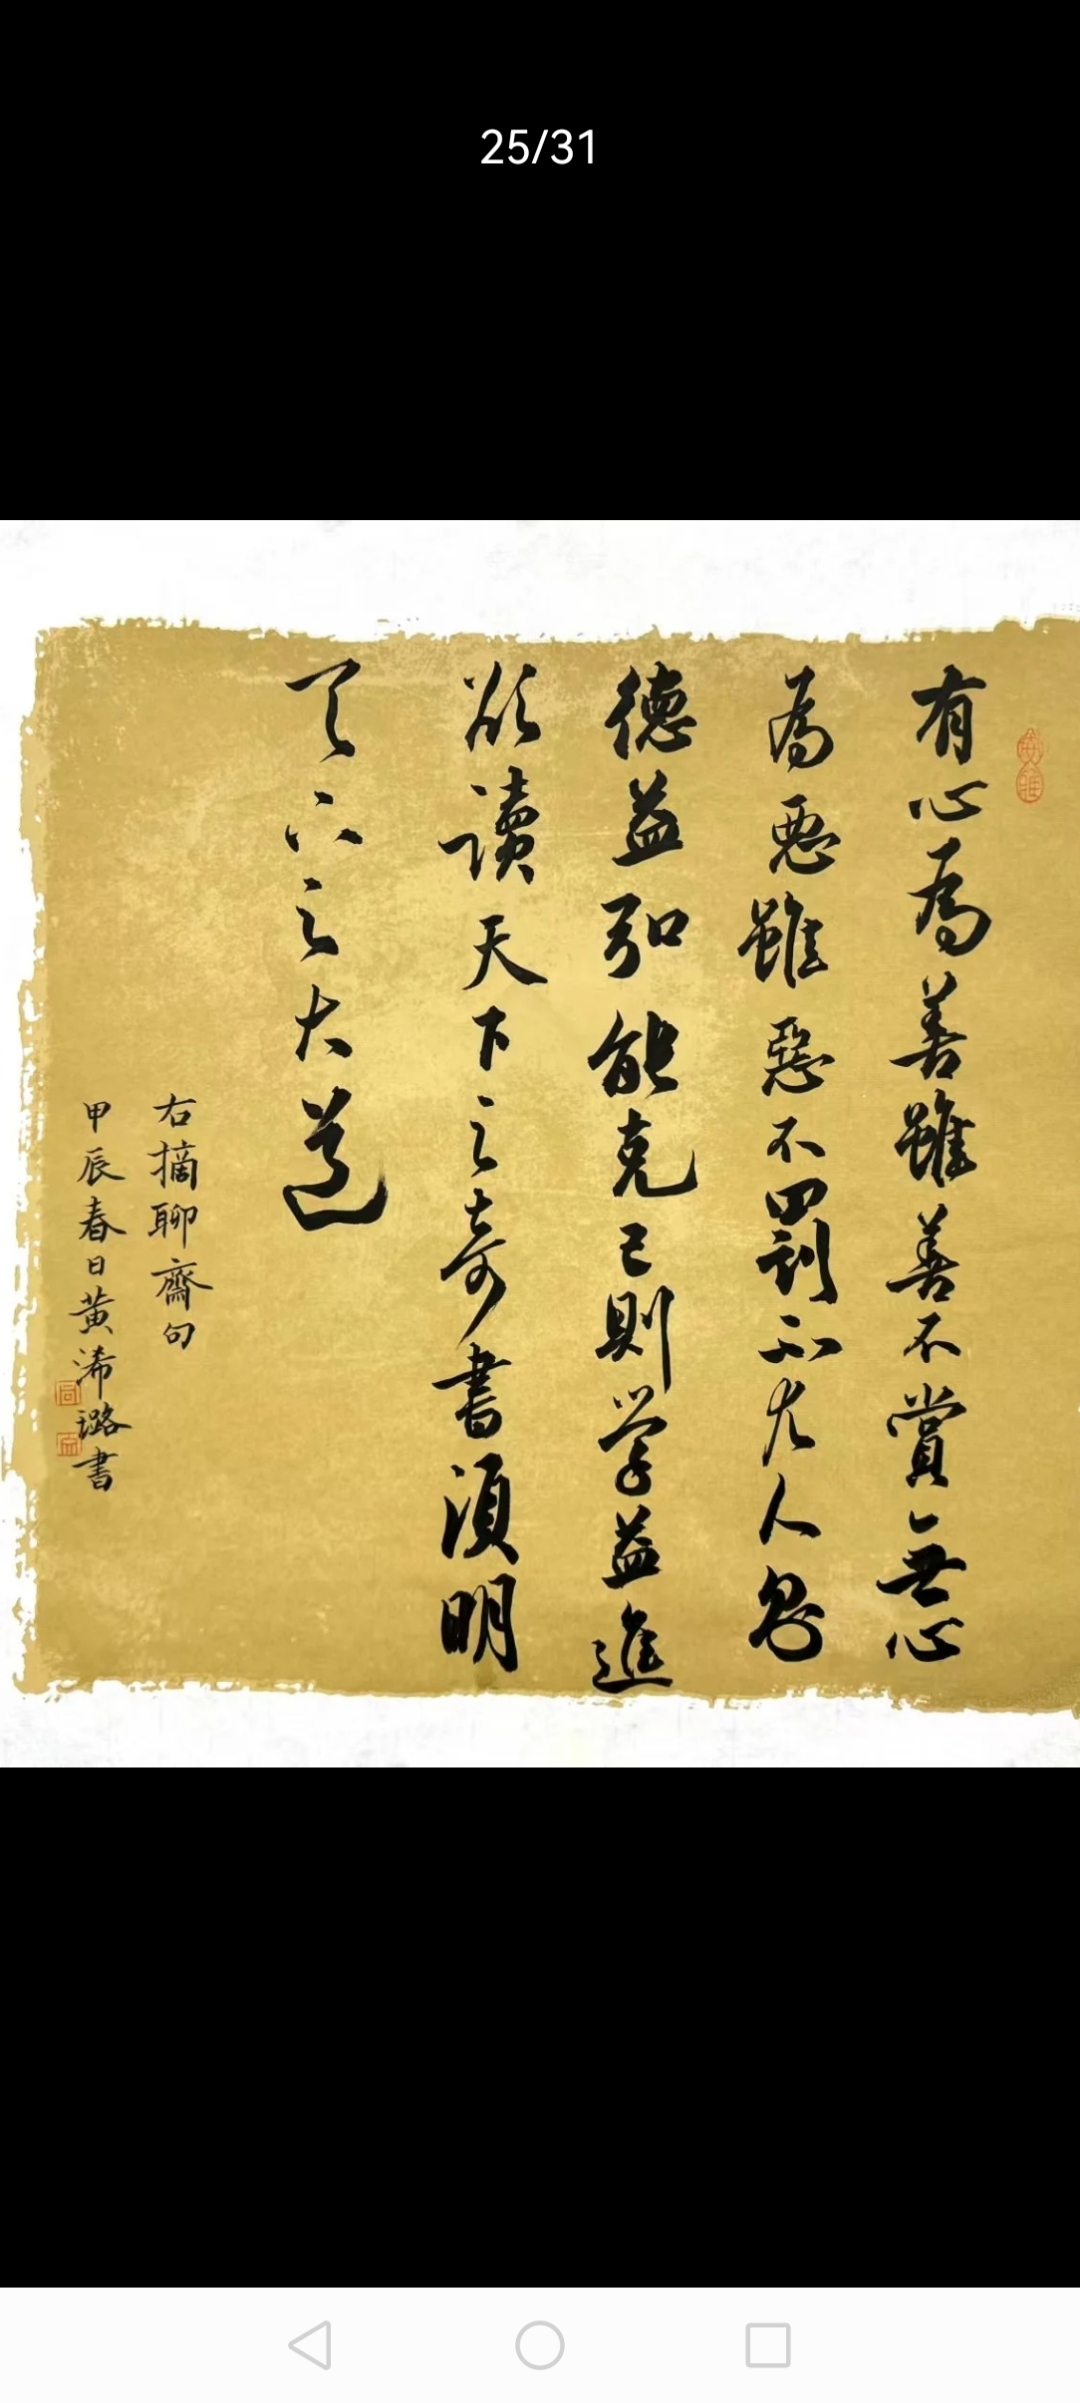 25/31
有心為善雖善不賞無心
為惡雖惡不罰不尤人則
德益弘能克己則学益進
欲讀天下之奇書須明
天下之大道
右摘聊齋句
甲辰春日黄浠璐書